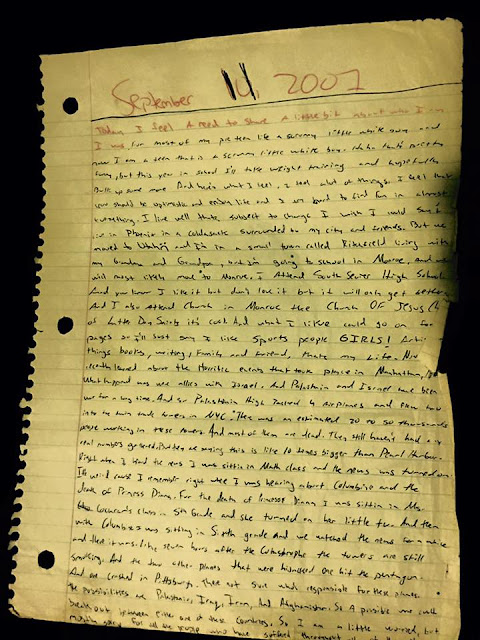 September 11, 2001
Today I feel a need to share a little bit about who I am
I was, for most of my preteen life a scrawny little white boy and
now I am a teen that is a scrawny little white boy.
funny, but this year in school I'll take weight training and hopefully
Bulk up some more. And here's what I feel, I feel alot of things. I feel that
love should be optimistic and enjoy life and I am bound to find fun in almost
everything. I live well that's subject to change I wish I could say I
live in Phoenix in a surrounded by my city and friends. But we
moved to Utah and I'm in a small town called Richfield living with
my Grandma and Grandpa, but I'm going to school in Monroe, and we
will most likely move to Monroe. I Attend South Sevier High School
And you know I like it but don't love it but it will only get better
And I also Attend Church in Monroe the Church OF JESUS Ch
of Latter Day Saints it's cool. And what I like could go on for
pages so I'll just say I like Sports people GIRLS!
things books, writing, family and friend, thats my life. Now
I recently heard about the Horrific events that took place in Manhattan,
What happend was were allies with Israel. And Palistain and Israel have been
war for a long time. And so Palistain High Jacked 4 airplanes and flew two
into the twin trade towers in NYC. There was an estimated 20 to 50 thousands
people working in these towers. And most of them are dead. They still haven't had a
real numbers gathered. But they are saying this is like 10 times bigger than Pearl Harbor.
Right when I heard the news I was sittin in Math class and the news was turned on.
It's weird cause I remember right when I was hearing about Columbine and the
death of Princess Diana. For the death of Princess Diana I was sittin in Ms.
class in 5th Grade and she turned on her little tv. And then
with Columbine I was sitting in Sixth grade And we watched the news for a while
and then it was. like seven hours after the Catastrophe the towers are still
smoking. And the two other planes that were hijacked one hit the pentagon
And one crashed in Pittsburg. There not sure who's responsible for these planes.
The possibilities are Palistain, Iraq, Iran, And Afghanistan. So A possible war could
break out between either one of these Countrys. So, I am a little worried, but
mostly sorry for all the people who have suffered throughout